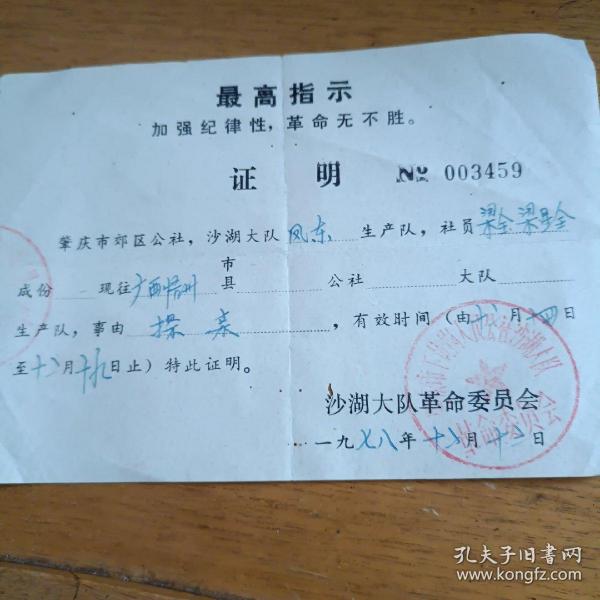 最高指示
加强纪律性，革命无不胜。
证 明 № 003459
肇庆市郊区公社，沙湖大队凤东生产队，社员梁金 梁
成份 现往广西梧州市县 公社 大队
生产队，事由探亲，有效时间（由十二月十四日
至十二月十九日止）特此证明。
沙湖大队革命委员会
一九七八年十二月十二日
孔夫子旧书网
www.kongfz.com